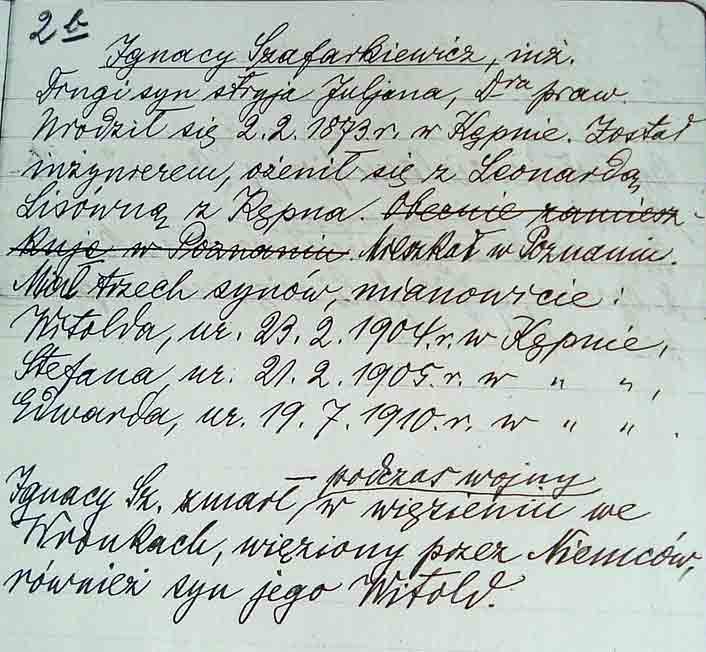 2 b
Ignacy Szafarkiewicz, inż.
Drugi syn stryja Juljana, Dra praw.
Urodził się 2.2.1873 r. w Kępnie. Został
inżynierem, ożenił się z Leonardą
Lisówną z Kępna. Obecnie zamiesz-
kuje w Poznaniu. Mieszkał w Poznaniu.
Miał trzech synów, mianowicie:
Witolda, ur. 23.2.1904.r. w Kępnie,
Stefana, ur. 21.2.1905.r. w „ „,
Edwarda, ur. 19.7.1910.r. w „ „.
podczas wojny
Ignacy Sz. zmarł, w więzieniu we
Wronkach, więziony przez Niemców,
również syn jego Witold.